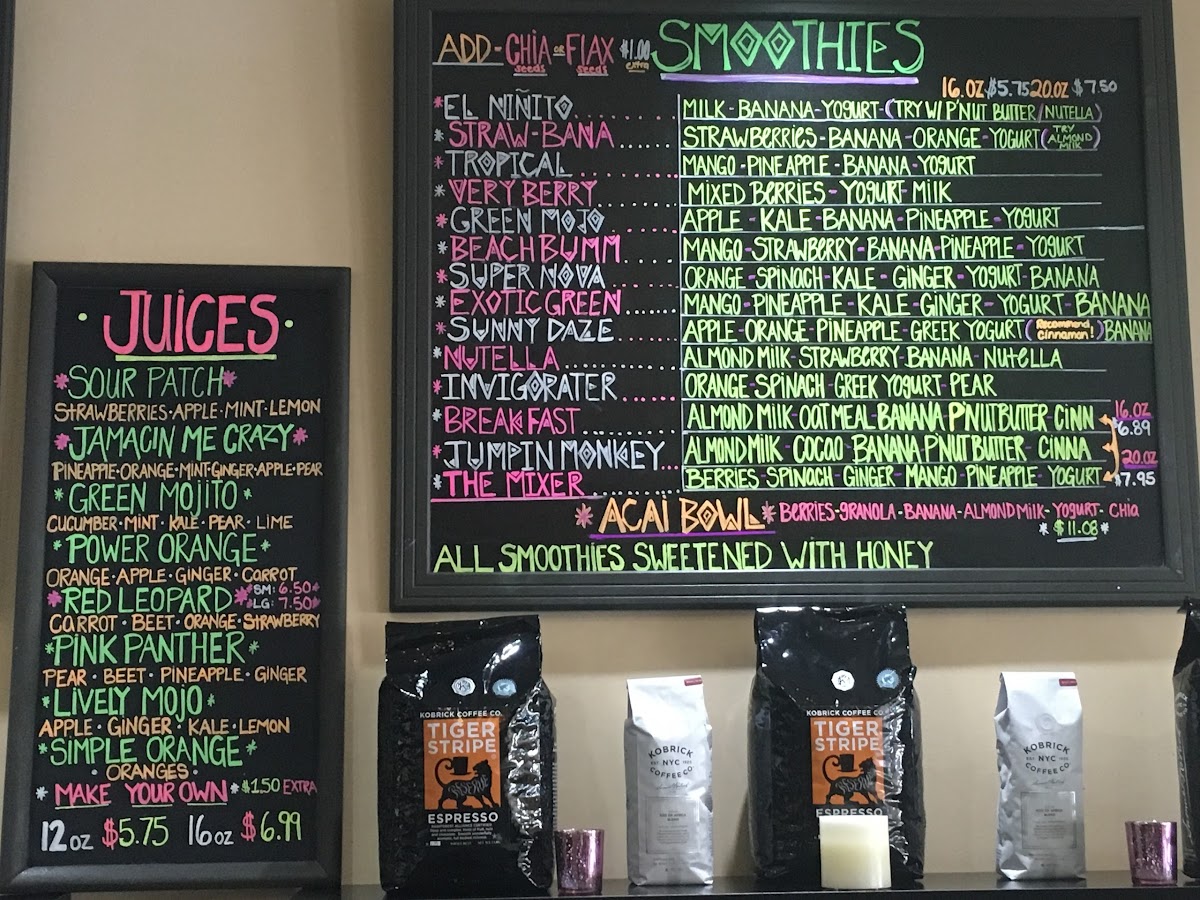 ADD-CHIA OR FLAX $1.00 SMOOTHIES
seeds seeds extra
16.OZ $5.75 20.OZ $7.50
*EL NIÑITO........ MILK-BANANA-YOGURT-(TRY W/ P'NUT BUTTER/NUTELLA)
*STRAW-BANA...... STRAWBERRIES-BANANA-ORANGE-YOGURT(TRY ALMOND MILK)
*TROPICAL........ MANGO-PINEAPPLE-BANANA-YOGURT
*VERY BERRY....... MIXED BERRIES-YOGURT-MILK
*GREEN MOJO....... APPLE-KALE-BANANA-PINEAPPLE-YOGURT
*BEACH BUMM..... MANGO-STRAWBERRY-BANANA-PINEAPPLE-YOGURT
*SUPER NOVA...... ORANGE-SPINACH-KALE-GINGER-YOGURT-BANANA
*EXOTIC GREEN..... MANGO-PINEAPPLE-KALE-GINGER-YOGURT-BANANA
*SUNNY DAZE...... APPLE-ORANGE-PINEAPPLE-GREEK YOGURT(Recommend cinnamon!)BANANA
*NUTELLA......... ALMOND MILK-STRAWBERRY-BANANA-NUTELLA
*INVIGORATER..... ORANGE-SPINACH-GREEK YOGURT-PEAR
*BREAKFAST....... ALMOND MILK-OATMEAL-BANANA-P'NUTBUTTER-CINN 16.OZ $6.89
*JUMPIN MONKEY... ALMONDMILK-COCAO-BANANA-P'NUTBUTTER-CINNA 20.OZ
*THE MIXER....... BERRIES-SPINACH-GINGER-MANGO-PINEAPPLE-YOGURT $7.95
*ACAI BOWL* BERRIES-GRANOLA-BANANA-ALMONDMILK-YOGURT-CHIA
*$11.08*
ALL SMOOTHIES SWEETENED WITH HONEY
·JUICES·
*SOUR PATCH*
STRAWBERRIES·APPLE·MINT·LEMON
*JAMACIN ME CRAZY*
PINEAPPLE·ORANGE·MINT·GINGER·APPLE·PEAR
*GREEN MOJITO*
CUCUMBER·MINT·KALE·PEAR·LIME
*POWER ORANGE*
ORANGE·APPLE·GINGER·CARROT
*RED LEOPARD* *SM: 6.50*
*LG: 7.50*
CARROT·BEET·ORANGE·STRAWBERRY
*PINK PANTHER*
PEAR·BEET·PINEAPPLE·GINGER
*LIVELY MOJO*
APPLE·GINGER·KALE·LEMON
*SIMPLE ORANGE*
·ORANGES·
*MAKE YOUR OWN* *$1.50 EXTRA
12oz $5.75 16oz $6.99
KOBRICK COFFEE CO.
TIGER
STRIPE
ESPRESSO
KOBRICK
NYC
COFFEE CO.
KOBRICK COFFEE CO.
TIGER
STRIPE
ESPRESSO
KOBRICK
NYC
COFFEE CO.